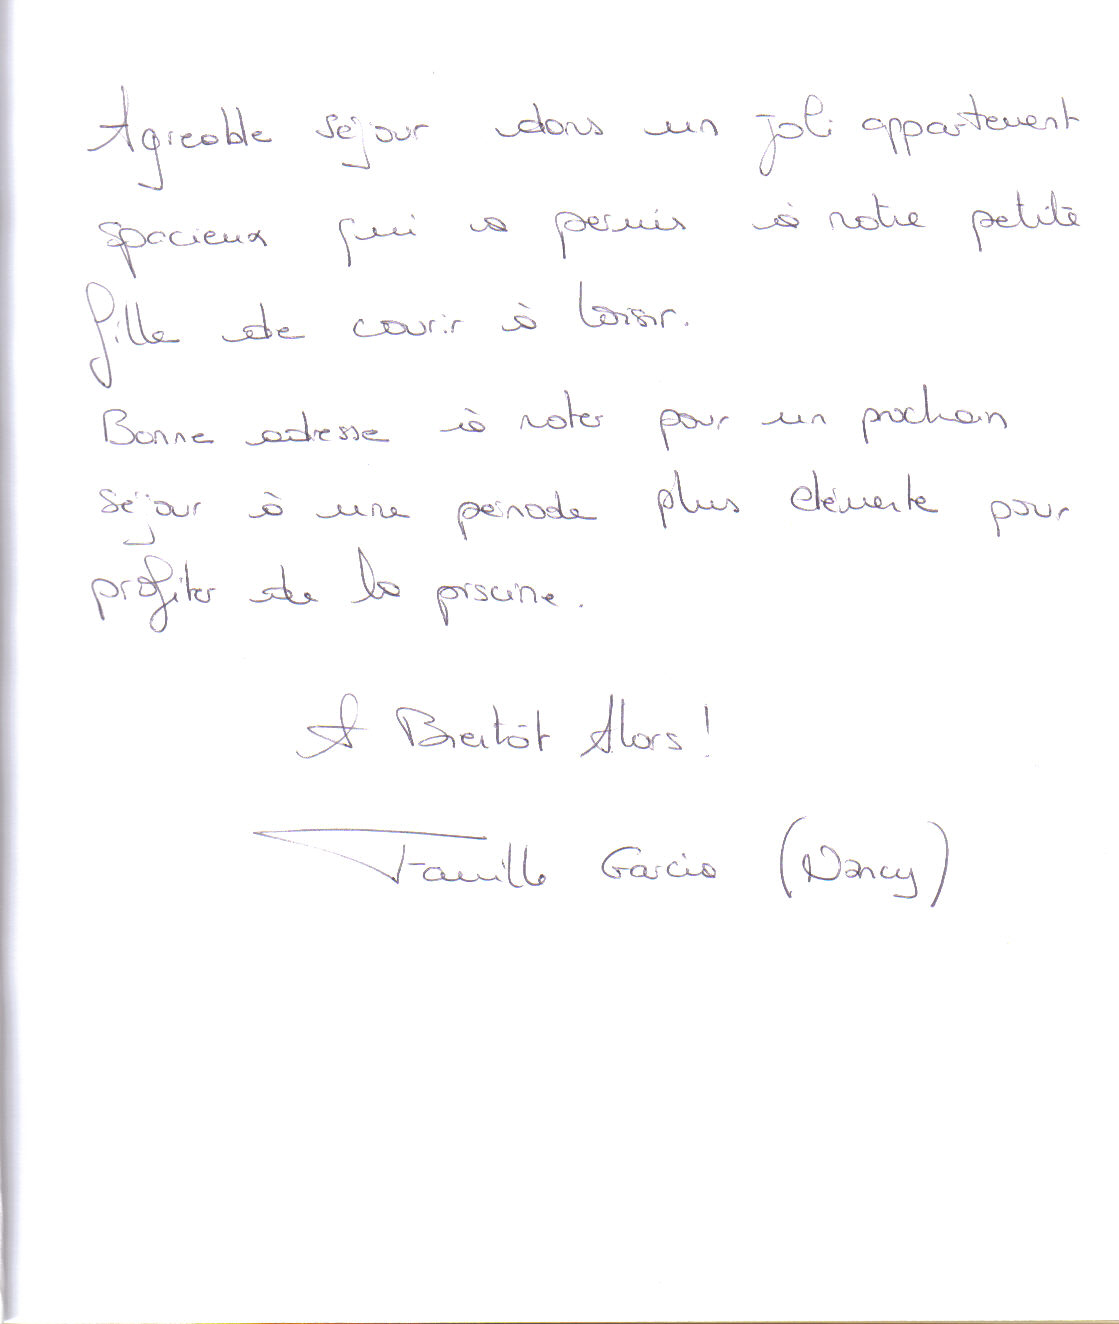 Agreable séjour dans un joli appartement
spacieux qui a permis à notre petite
fille de courir à loisir.
Bonne adresse à noter pour un prochain
séjour à une période plus clémente pour
profiter de la piscine.
A Bientôt Alors !
Famille Garcia (Nancy)